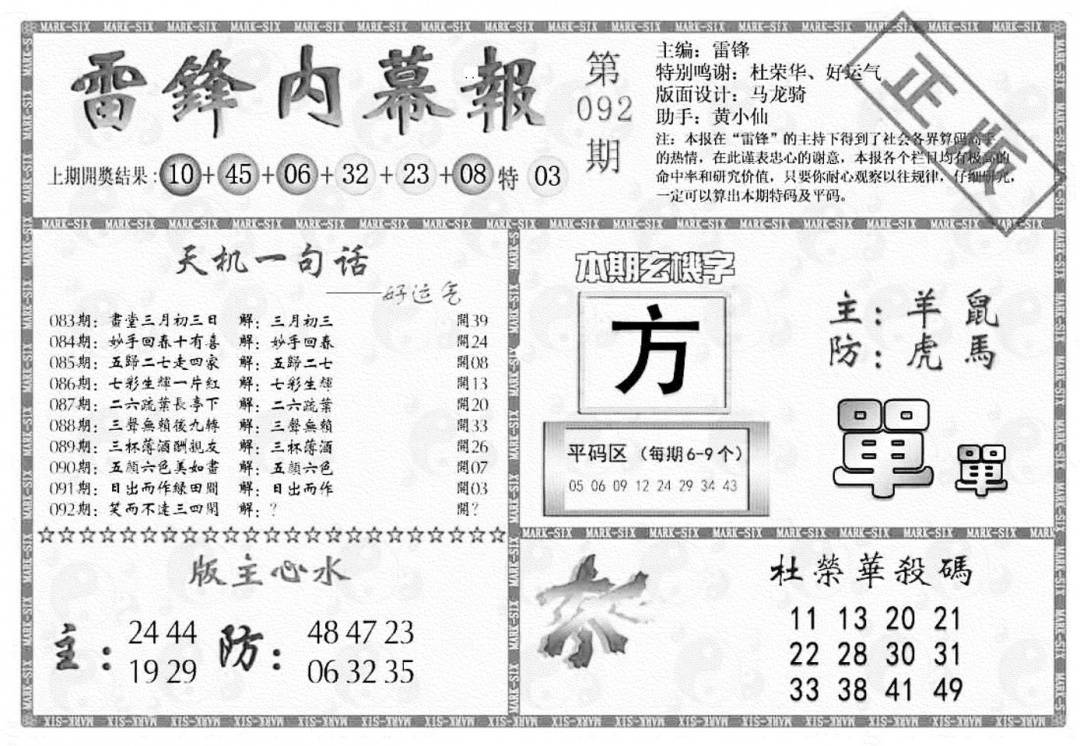 雷鋒内幕報
第
092
期
主编：雷锋
特别鸣谢：杜荣华、好运气
版面设计：马龙骑
助手：黄小仙
注：本报在“雷锋”的主持下得到了社会各界算码高手
的热情，在此谨表忠心的谢意，本报各个栏目均有极高的
命中率和研究价值，只要你耐心观察以往规律，仔细研究，
一定可以算出本期特码及平码。
正版
上期開獎结果：10+45+06+32+23+08特 03
天机一句话
——好运气
083期：書堂三月初三日 解：三月初三 開39
084期：妙手回春十有喜 解：妙手回春 開24
085期：五歸二七走四家 解：五歸二七 開08
086期：七彩生輝一片紅 解：七彩生輝 開13
087期：二六疏葉長亭下 解：二六疏葉 開20
088期：三聲無賴後九轉 解：三聲無賴 開33
089期：三杯薄酒酬親友 解：三杯薄酒 開26
090期：五顔六色美如畫 解：五顔六色 開07
091期：日出而作緑田間 解：日出而作 開03
092期：笑而不達三四閑 解：? 開?
本期玄機字
方
主：羊 鼠
防：虎 馬
平码区（每期6-9个）
05 06 09 12 24 29 34 43
單 單
版主心水
主：24 44 防：48 47 23
19 29 06 32 35
杀
杜榮華殺碼
11 13 20 21
22 28 30 31
33 38 41 49
MARK-SIX